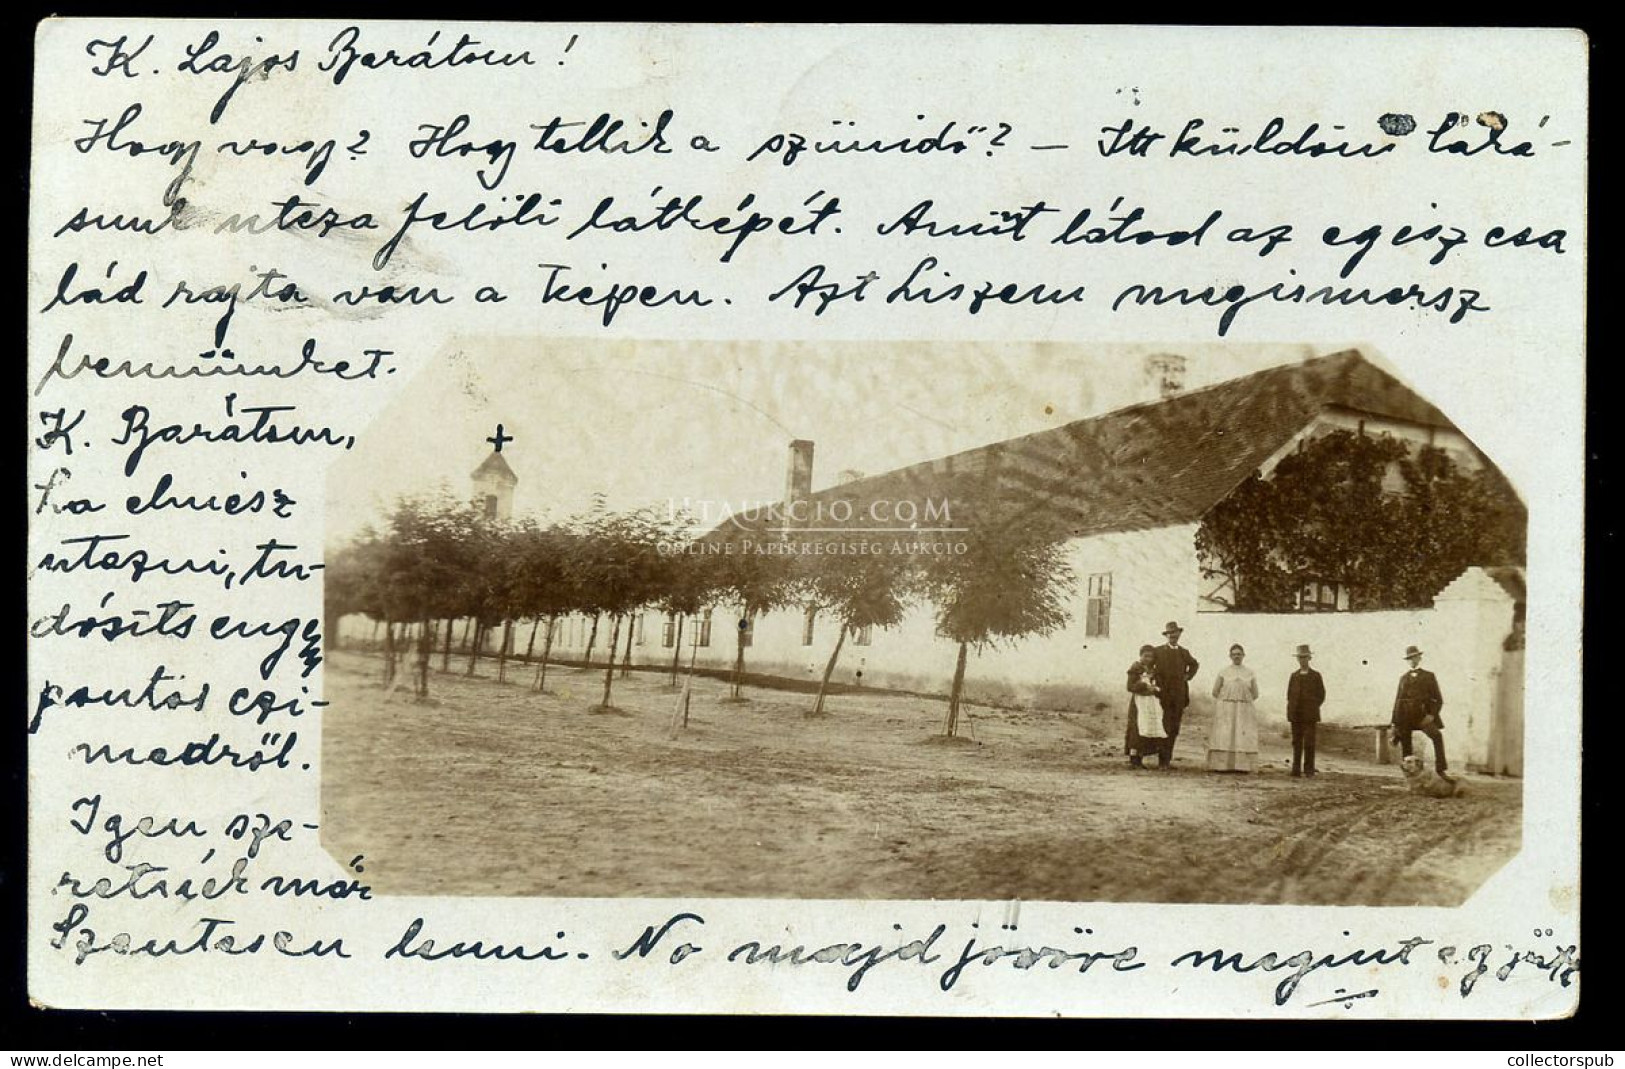 K. Lajos Barátom!
Hogy vagy? Hogy tellik a szünidő? – Itt küldöm laká-
sunk utcza felöli látképét. Amint látod az egisz csa
lád rajta van a képen. Azt hiszem megismersz
bennünket.
K. Barátom,
ha elmész
utazni, tu-
dósíts engem
pontos czi-
medről.
Igen sze-
retnék már
Szentesen lenni. No majd jövöre megint együtt
HTAUKCIO.COM
ONLINE PAPÍRRÉGISÉG AUKCIÓ
delcampe.net
collectorspub